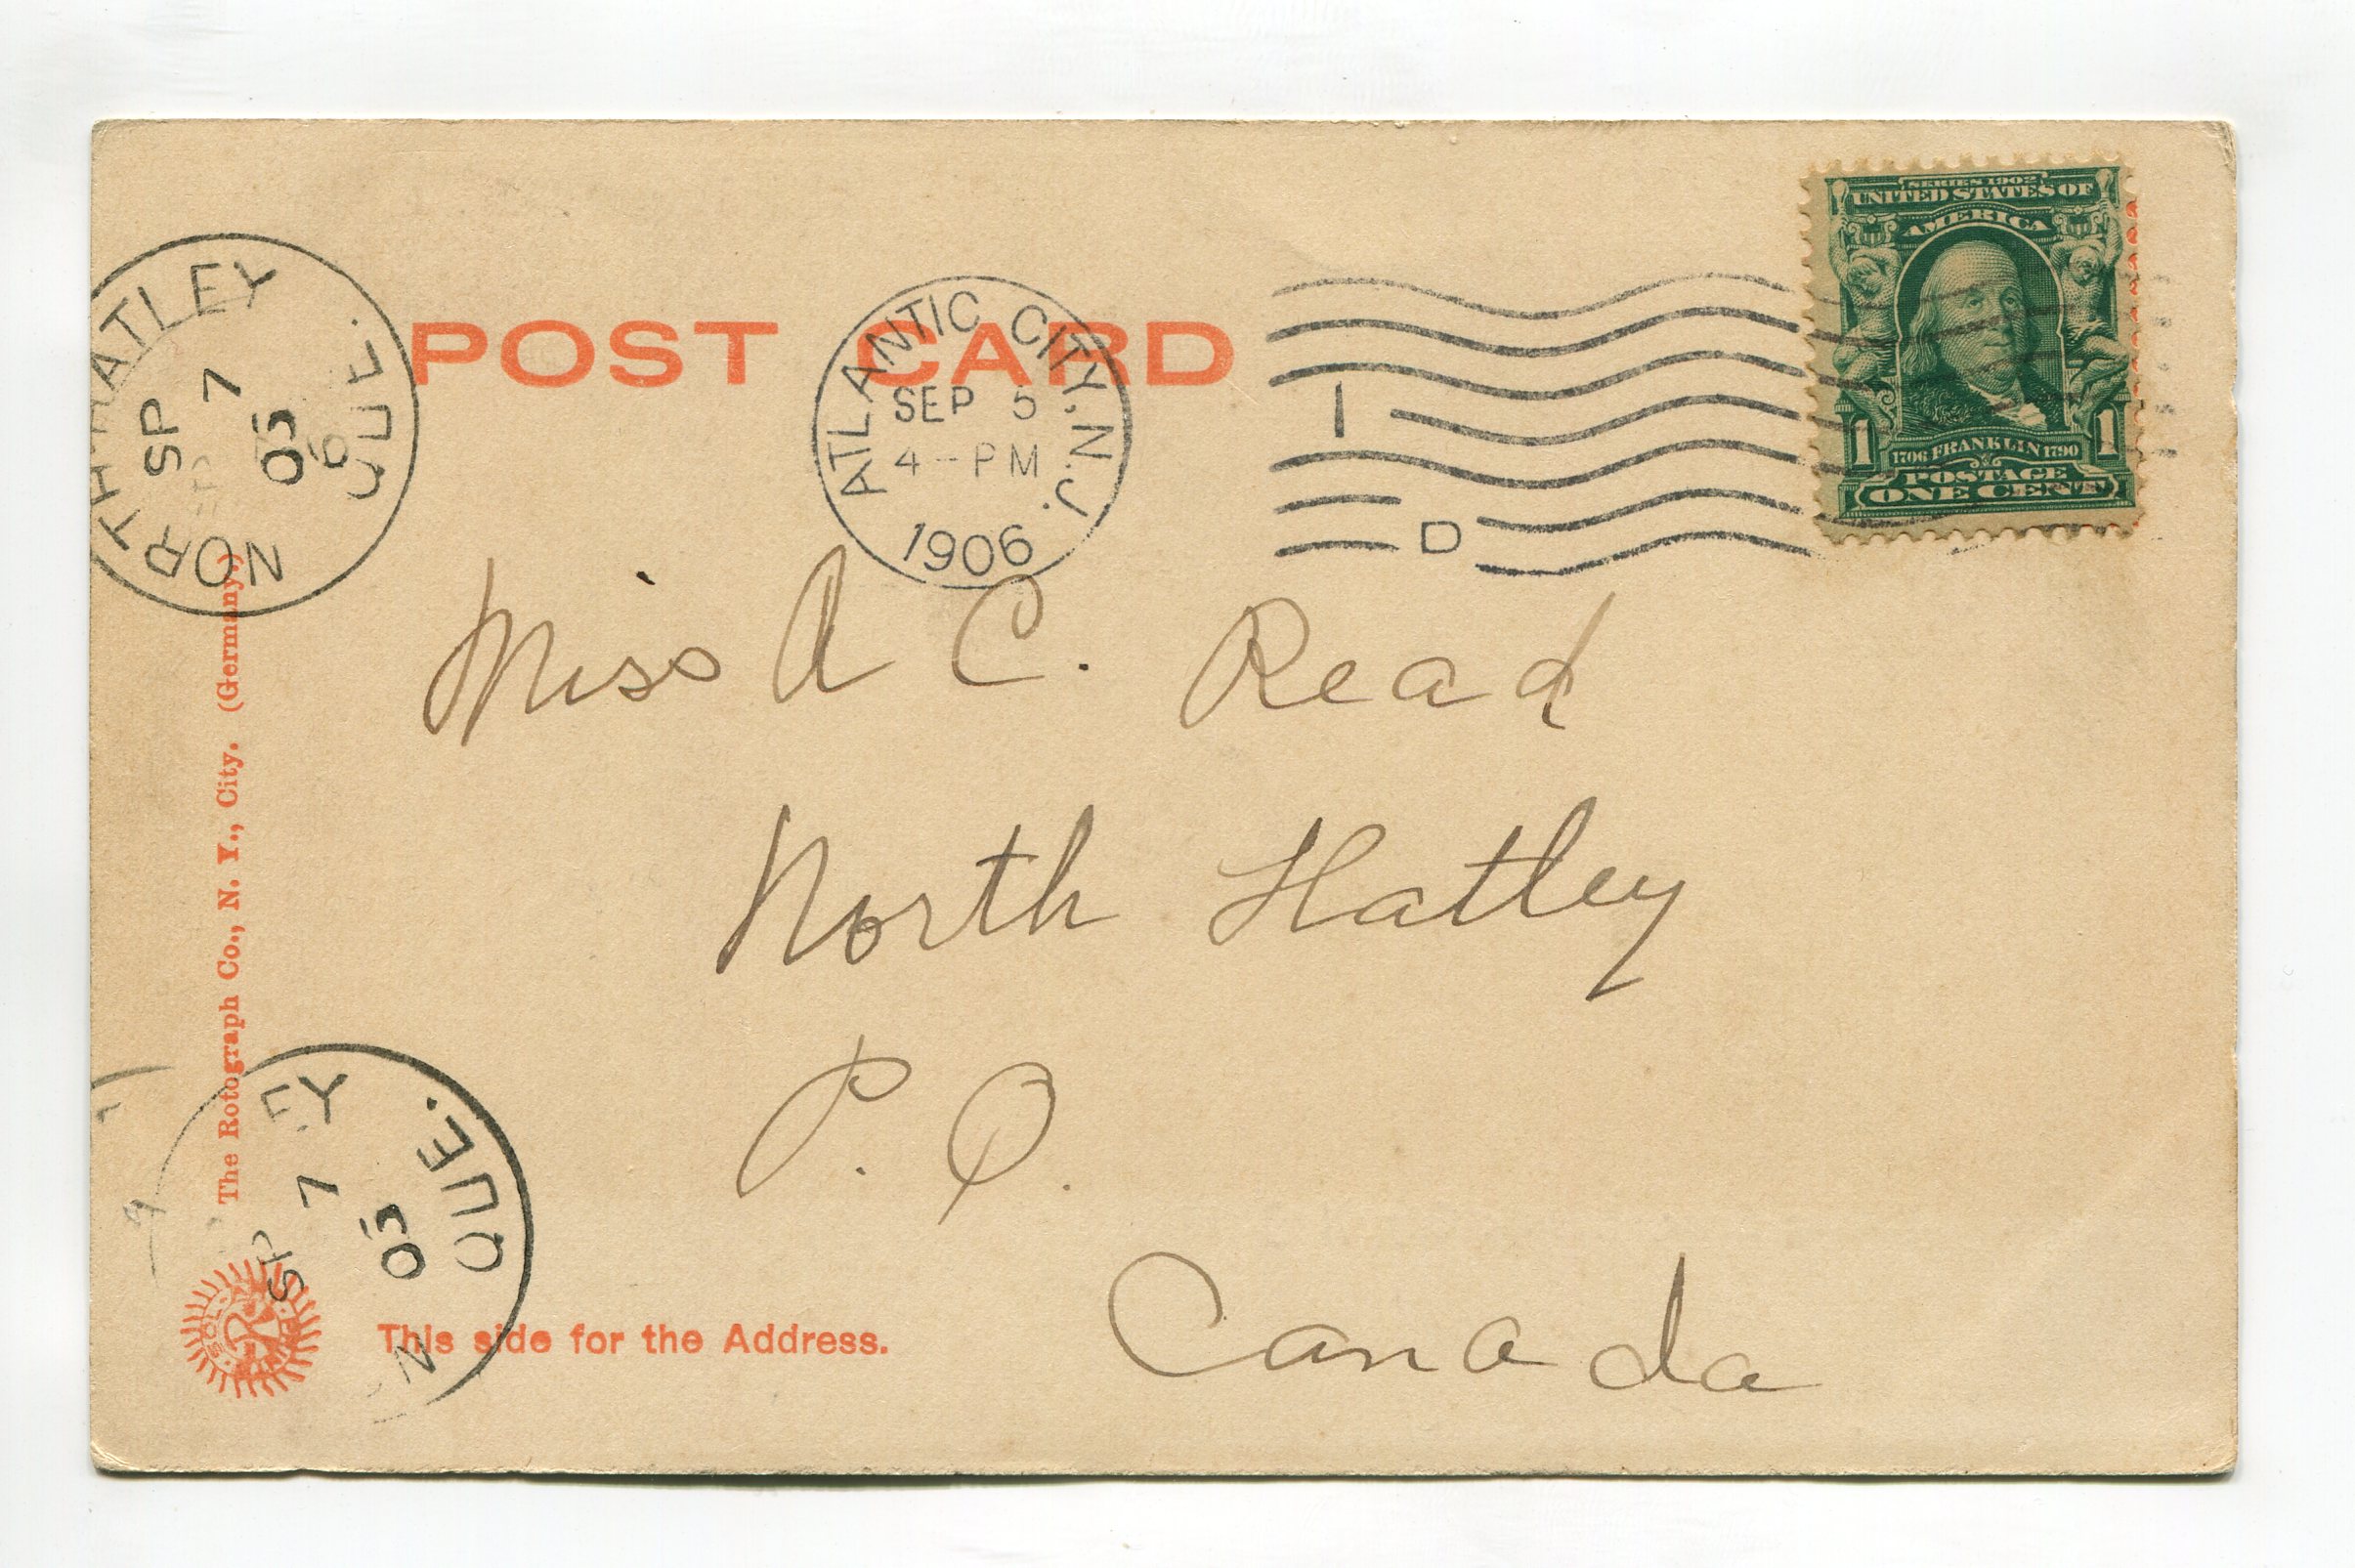 POST CARD
SERIES 1902
UNITED STATES OF
AMERICA
1 1
1706 FRANKLIN 1790
POSTAGE
ONE CENT
ATLANTIC CITY, N.J.
SEP 5
4-PM
1906
1
D
NORTH HATLEY
QUE.
SP 7
05
6
Miss A C. Read
North Hatley
P. Q.
Canada
The Rotograph Co., N. Y., City. (Germany.)
EY
QUE.
SP 7
05
N
This side for the Address.